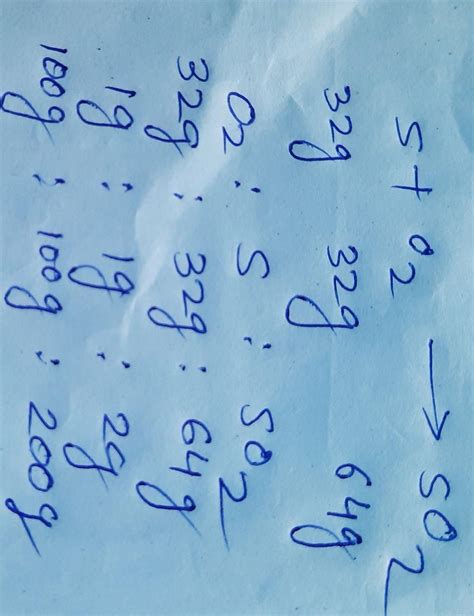 S + O2 → SO2
32g 32g 64g
O2 : S : SO2
32g : 32g : 64g
1g : 1g : 2g
100g : 100g : 200g